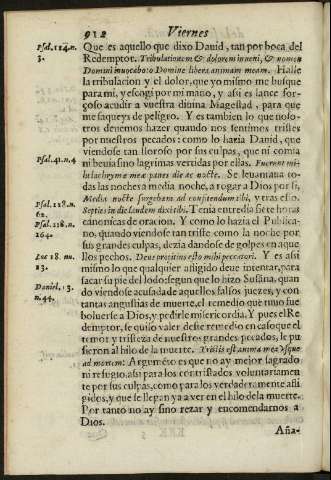 912 Viernes
Psal. 114. n. 3.
Que es aquello que dixo Dauid, tan por boca del
Redemptor. Tribulationem & dolorem inueni, & nomen
Domini inuocabo: o Domine libera animam meam. Hallè
la tribulacion y el dolor, que yo mismo me busque
para mi, y escogi por mi mano, y assi es lance for-
çoso acudir a vuestra diuina Magestad, para que
me saqueys de peligro. Y es tambien lo que noso-
tros deuemos hazer quando nos sentimos tristes
por nuestros pecados: como lo hazia Dauid, que
viendose tan lloroso por sus culpas, que ni comia
Psal. 41. n. 4
ni beuia sino lagrimas vertidas por ellas. Fuerunt mi-
hi lachrymæ meæ panes die ac nocte. Se leuantaua to-
das las noches a media noche, a rogar a Dios por si,
Psal. 118. n. 62.
Media nocte surgebam ad confitendum tibi, y tras esso.
Psal. 118. n. 164.
Septies in die laudem dixi tibi. Tenia entre dia siete horas
canonicas de oracion. Y como lo hazia el Publica-
no, quando viendose tan triste como la noche por
sus grandes culpas, dezia dandose de golpes en aque
Luc 18. nu. 13.
llos pechos. Deus propitius esto mihi peccatori. Y es assi
mismo lo que qualquier afligido deue intentar, para
Daniel. 13. n. 44.
sacar su pie del lodo: segun que lo hizo Susana, quan
do viendose acusada de aquellos falsos juezes, y con
tantas angustias de muerte, el remedio que tuuo fue
boluerse a Dios, y pedirle misericordia. Y pues el Re
demptor, se quiso valer deste remedio en caso que el
temor y tristeza de nuestros grandes pecados, le pu
sieron al hilo de la muerte. Tristis est anima mea vsque
ad mortem: Argumẽto es que no ay mejor sagrado
ni refugio, assi para los contristados voluntariamen
te por sus culpas, como para los verdaderamente afli
gidos, y que se llegan ya a ver en el hilo de la muerte.
Por tanto no ay sino rezar y encomendarnos a
Dios.
Aña-